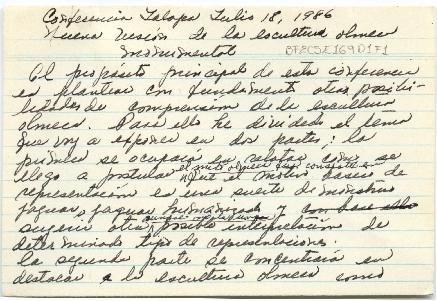 Conferencia Jalapa Julio 18, 1986
Nueva vision de la escultura olmeca
monumental
BFBCSE169D1F1
El propósito principal de esta conferencia
es plantear con fundamento otras posibi-
lidades de comprensión de la escultura
olmeca. Para ello he dividido el tema
que voy a exponer en dos partes: la
primera se ocupará en relatar como se
llegó a postular el mito olmeca que consiste en
que el motivo básico de
representación es una suerte de monstruo
jaguar, jaguar humanizado y con base
sugerir otra posible interpretación de
determinado tipo de representaciones.
la segunda parte se concentrará en
destacar a la escultura olmeca como